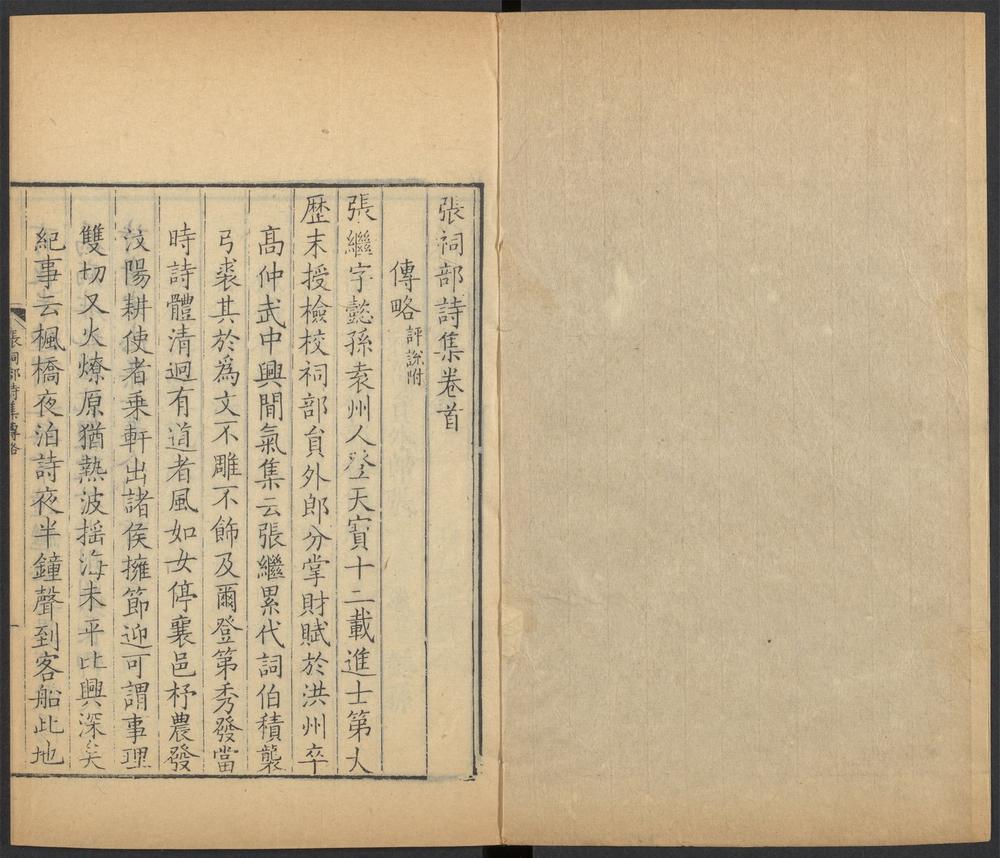 張祠部詩集卷首
傳略 評說附
張繼字懿孫袁州人登天寶十二載進士第大
歷末授檢校祠部貟外郎分掌財賦於洪州卒
高仲武中興閒氣集云張繼累代詞伯積襲
弓裘其於爲文不雕不飾及爾登第秀發當
時詩體清迥有道者風如女停襄邑杼農發
汶陽耕使者乘軒出諸侯擁節迎可謂事理
雙切又火燎原猶熱波搖海未平比興深矣
紀事云楓橋夜泊詩夜半鐘聲到客船此地
張祠部詩集傳略
一